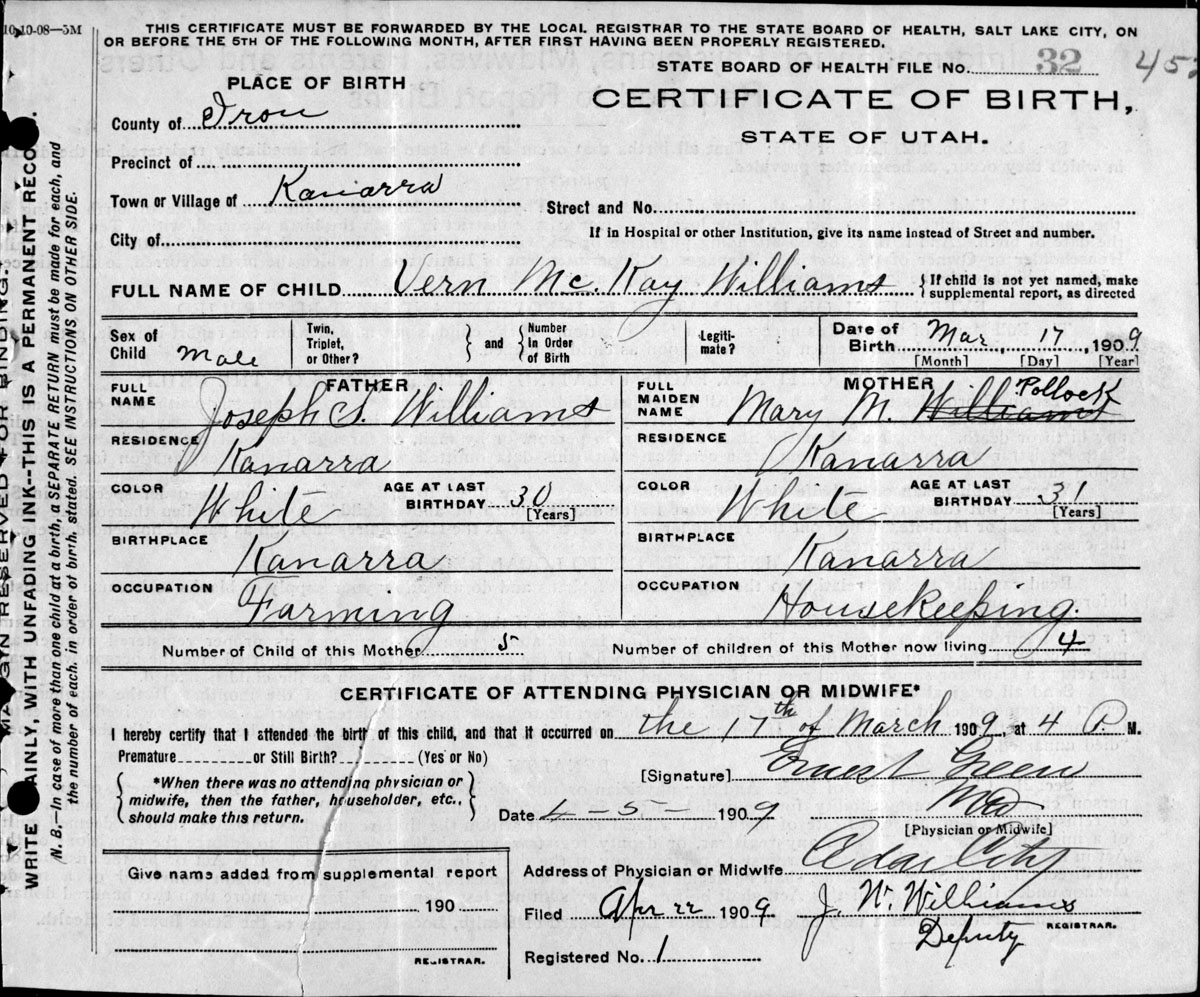 10-10-08—5M
THIS CERTIFICATE MUST BE FORWARDED BY THE LOCAL REGISTRAR TO THE STATE BOARD OF HEALTH, SALT LAKE CITY, ON
OR BEFORE THE 5TH OF THE FOLLOWING MONTH, AFTER FIRST HAVING BEEN PROPERLY REGISTERED.
STATE BOARD OF HEALTH FILE No. 32
PLACE OF BIRTH
CERTIFICATE OF BIRTH,
STATE OF UTAH.
County of Iron
Precinct of
Town or Village of Kanarra
Street and No.
City of
If in Hospital or other Institution, give its name instead of Street and number.
FULL NAME OF CHILD Vern Mc. Kay Williams { If child is not yet named, make
supplemental report, as directed
Sex of Child Male
Twin, Triplet, or Other? } and { Number In Order of Birth
Legiti-mate?
Date of Birth Mar, 17, 1909
[Month] [Day] [Year]
FATHER
FULL NAME Joseph S. Williams
RESIDENCE
Kanarra
COLOR White AGE AT LAST BIRTHDAY 30 [Years]
BIRTHPLACE
Kanarra
OCCUPATION
Farming
MOTHER
FULL MAIDEN NAME Mary M. Williams Pollock
RESIDENCE
Kanarra
COLOR White AGE AT LAST BIRTHDAY 31 [Years]
BIRTHPLACE
Kanarra
OCCUPATION
Housekeeping.
Number of Child of this Mother 5 Number of children of this Mother now living 4
CERTIFICATE OF ATTENDING PHYSICIAN OR MIDWIFE*
I hereby certify that I attended the birth of this child, and that it occurred on the 17th of March 1909, at 4 P. M.
Premature or Still Birth? (Yes or No)
*When there was no attending physician or
midwife, then the father, householder, etc.,
should make this return.
[Signature] Ernest Green
MD
Date 4-5- 1909
[Physician or Midwife]
Address of Physician or Midwife City
Give name added from supplemental report
190
REGISTRAR.
Filed Apr 22 1909 J. W. Williams
Deputy REGISTRAR.
Registered No. 1
MARGIN RESERVED FOR BINDING.
WRITE PLAINLY, WITH UNFADING INK--THIS IS A PERMANENT RECORD.
N. B.—In case of more than one child at a birth, a SEPARATE RETURN must be made for each, and
the number of each, in order of birth, stated. SEE INSTRUCTIONS ON OTHER SIDE.